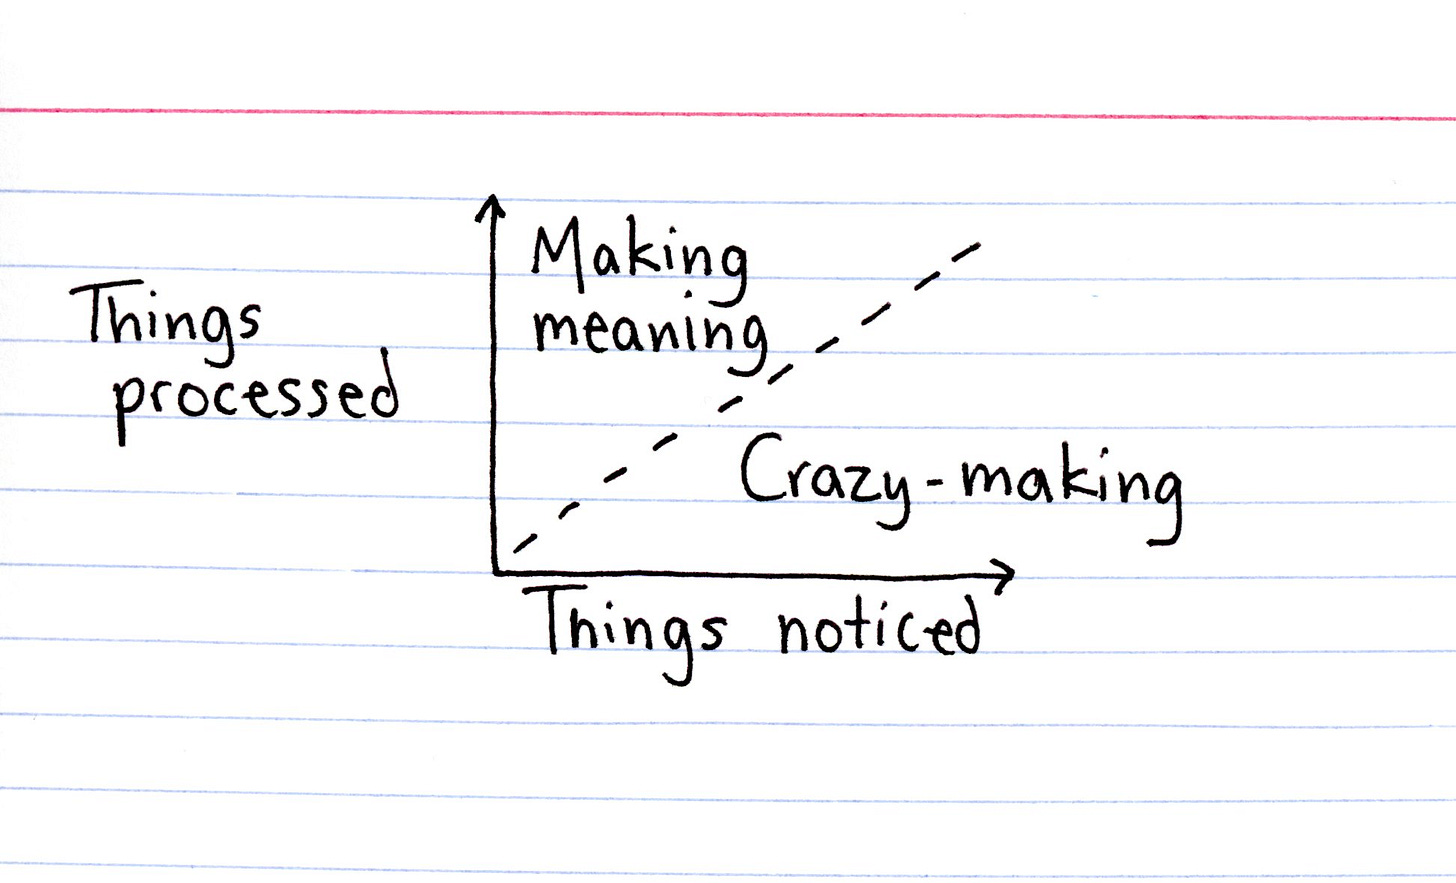 Making
meaning
Things
processed
Crazy-making
Things noticed